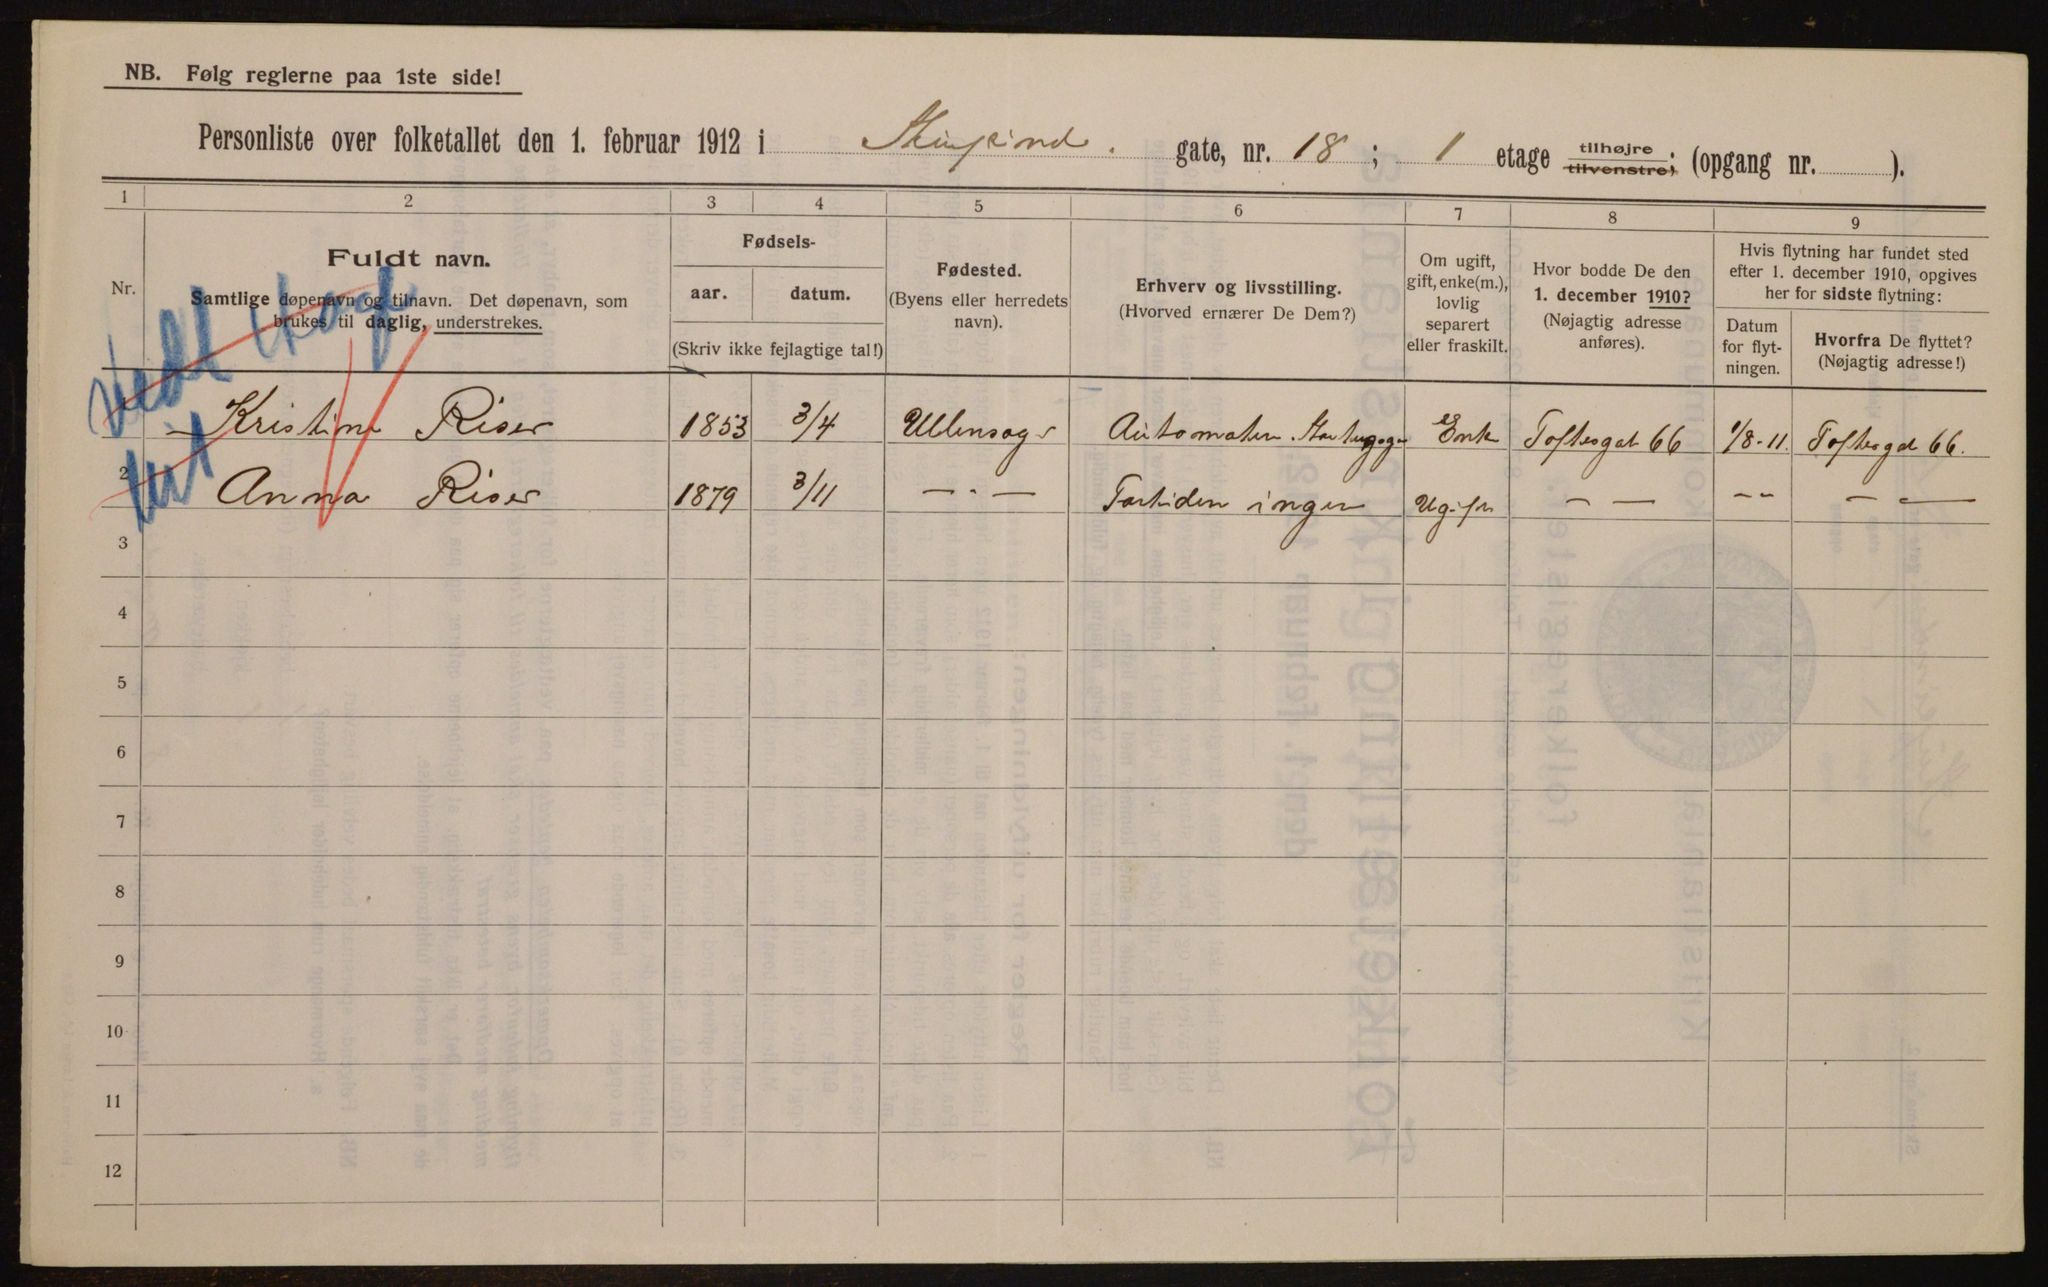 NB. Følg reglerne paa 1ste side!
Personliste over folketallet den 1. februar 1912 i gate, nr. 18; 1 etage tilhøjre tilvenstre; (opgang nr. ).
1 2 3 4 5 6 7 8 9
Nr.
Fuldt navn.
Samtlige døpenavn og tilnavn. Det døpenavn, som
brukes til daglig, understrekes.
Fødsels-
aar. datum.
(Skriv ikke fejlagtige tal!)
Fødested.
(Byens eller herredets
navn).
Erhverv og livsstilling.
(Hvorved ernærer De Dem?)
Om ugift,
gift, enke(m.),
lovlig
separert
eller fraskilt.
Hvor bodde De den
1. december 1910?
(Nøjagtig adresse
anføres).
Hvis flytning har fundet sted
efter 1. december 1910, opgives
her for sidste flytning:
Datum
for flyt-
ningen.
Hvorfra De flyttet?
(Nøjagtig adresse!)
Kristine Riser 1853 3/4 Ullensager Enke Toftesgat 66 1/8-11 Toftesgat 66.
2 Anna Riser 1879 3/11 — " — Fortiden ingen Ugift — — -"- — —
3
4
5
6
7
8
9
10
11
12